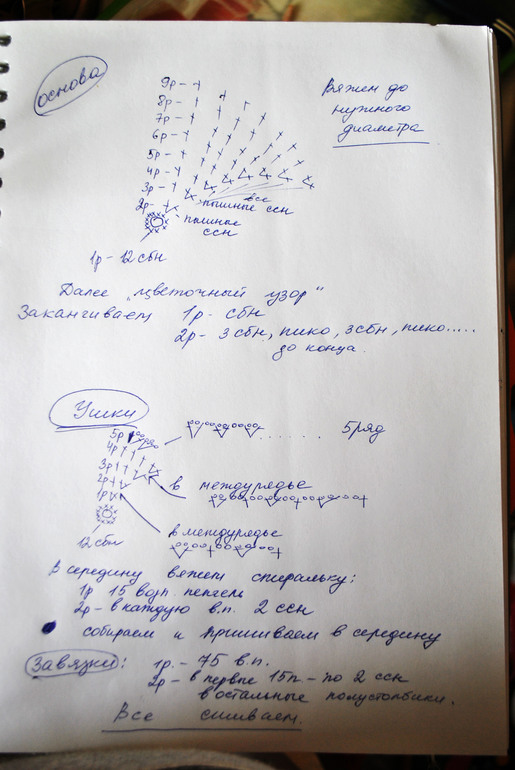 основа
9р -
8р -
7р -
6р -
5р -
4р -
3р -
2р -
Вяжем до
нужного
диаметра
все
пышные ссн
пышные
ссн
1р - 12 сбн
Далее „цветочный узор"
Заканчиваем 1р - сбн
2р - 3 сбн, пико, 3 сбн, пико.....
до конца.
Ушки
5р
4р
3р
2р
1р
5 ряд
в междурядье
в междурядье
12 сбн
В середину вяжем спиральку:
1р 15 возд. петель
2р - в каждую в.п. 2 ссн
собираем и пришиваем в середину
Завязки: 1р. - 75 в.п.
2р - в первые 15п - по 2 ссн
в остальные полустолбики.
Все сшиваем.